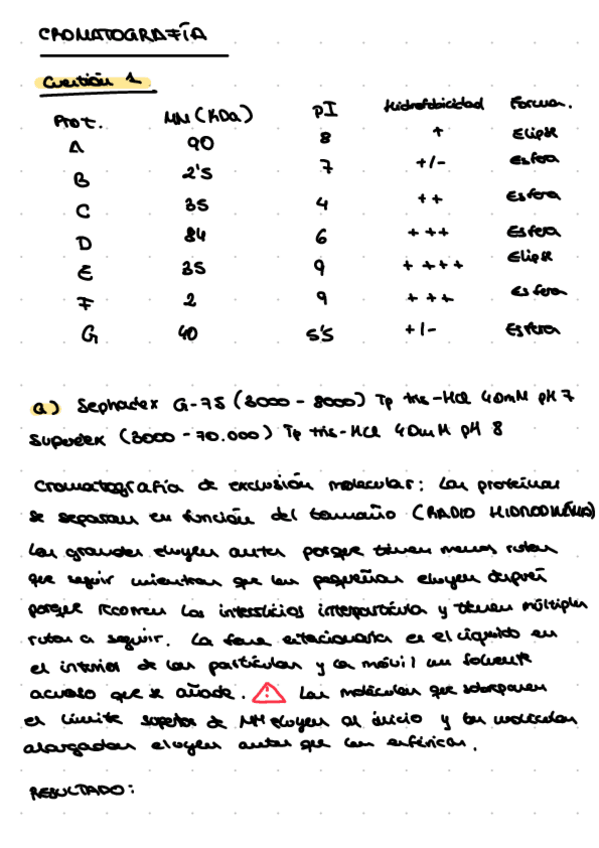 CROMATOGRAFÍA
Cuestión 1
Prot. MM (KDa) pI Hidrofobicidad Forma.
A 90 8 + Elipse
B 2's 7 +/- Esfera
C 35 4 ++ Esfera
D 84 6 +++ Esfera
E 35 9 ++++ Elipse
F 2 9 +++ Esfera
G 40 5's +/- Esfera
a) Sephadex G-75 (3000 - 8000) Tp tris-HCl 40mM pH 7
Superdex (3000 - 70.000) Tp tris-HCl 40mM pH 8
Cromatografía de exclusión molecular: Las proteínas
se separan en función del tamaño (RADIO HIDRODINÁMICO)
Las grandes eluyen antes porque tienen menos rutas
que seguir mientras que las pequeñas eluyen después
porque recorren los intersticios interpartícula y tienen múltiples
rutas a seguir. La fase estacionaria es el líquido en
el interior de las partículas y la móvil un solvente
acuoso que se añade. ⚠ Las moléculas que sobrepasen
el límite superior de MM eluyen al inicio y las moléculas
alargadas eluyen antes que las esféricas.
RESULTADO: